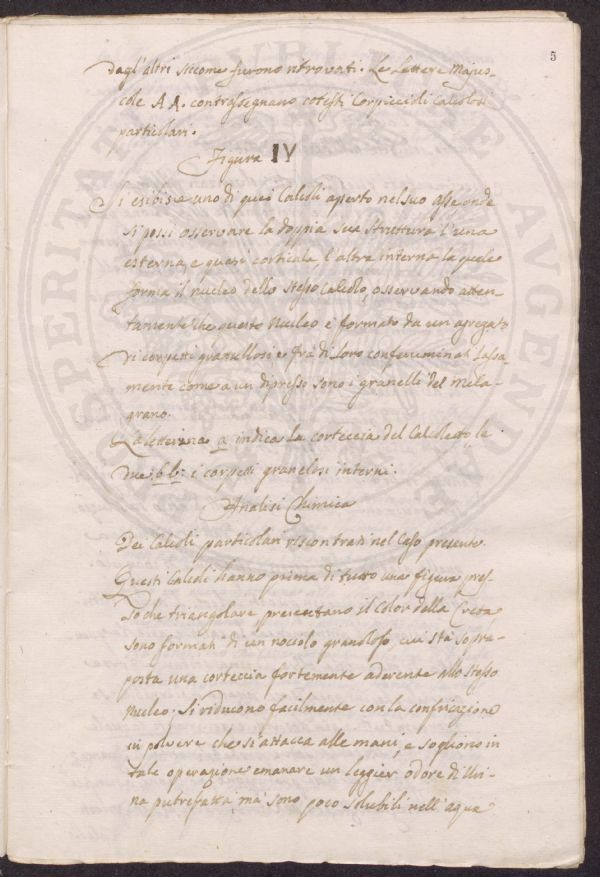 5
dagl'altri siccome furono ritrovati. Le Lettere Majus-
cole A A. contrassegnano cotesti Corpiccioli Calcolosi
particolari.
Figura IV
Si esibisce uno di quei Calcoli aperto nel suo asse onde
si possi osservare la doppia sua struttura l'una
esterna, e quasi corticale, l'altra interna la quale
forma il nucleo dello stesso calcolo, osservando atten-
tamente che questo Nucleo è formato da un agregato
di corpetti granellosi e fra di loro conferruminati lassa-
mente come a un dipresso sono i granelli del mela-
grano.
La letterina a indica la corteccia del Calcoletto, le
due b b. i corpetti granelosi interni.
Analisi Chimica
Dei Calcoli particolari riscontrati nel Caso presente.
Questi Calcoli hanno prima di tutto una figura pres-
so che triangolare presentano il Color della Creta
sono formati di un nociolo granoloso, cui sta sopra-
posta una corteccia fortemente aderente allo stesso
Nucleo; Si riducono facilmente con la confricazione
in polvere che si attacca alle mani, e sogliono in
tale operazione emanare un leggier odore di Uri-
na putrefatta ma sono poco solubili nell'aqua
PROSPERITATI PUBLICAE AVGENDAE